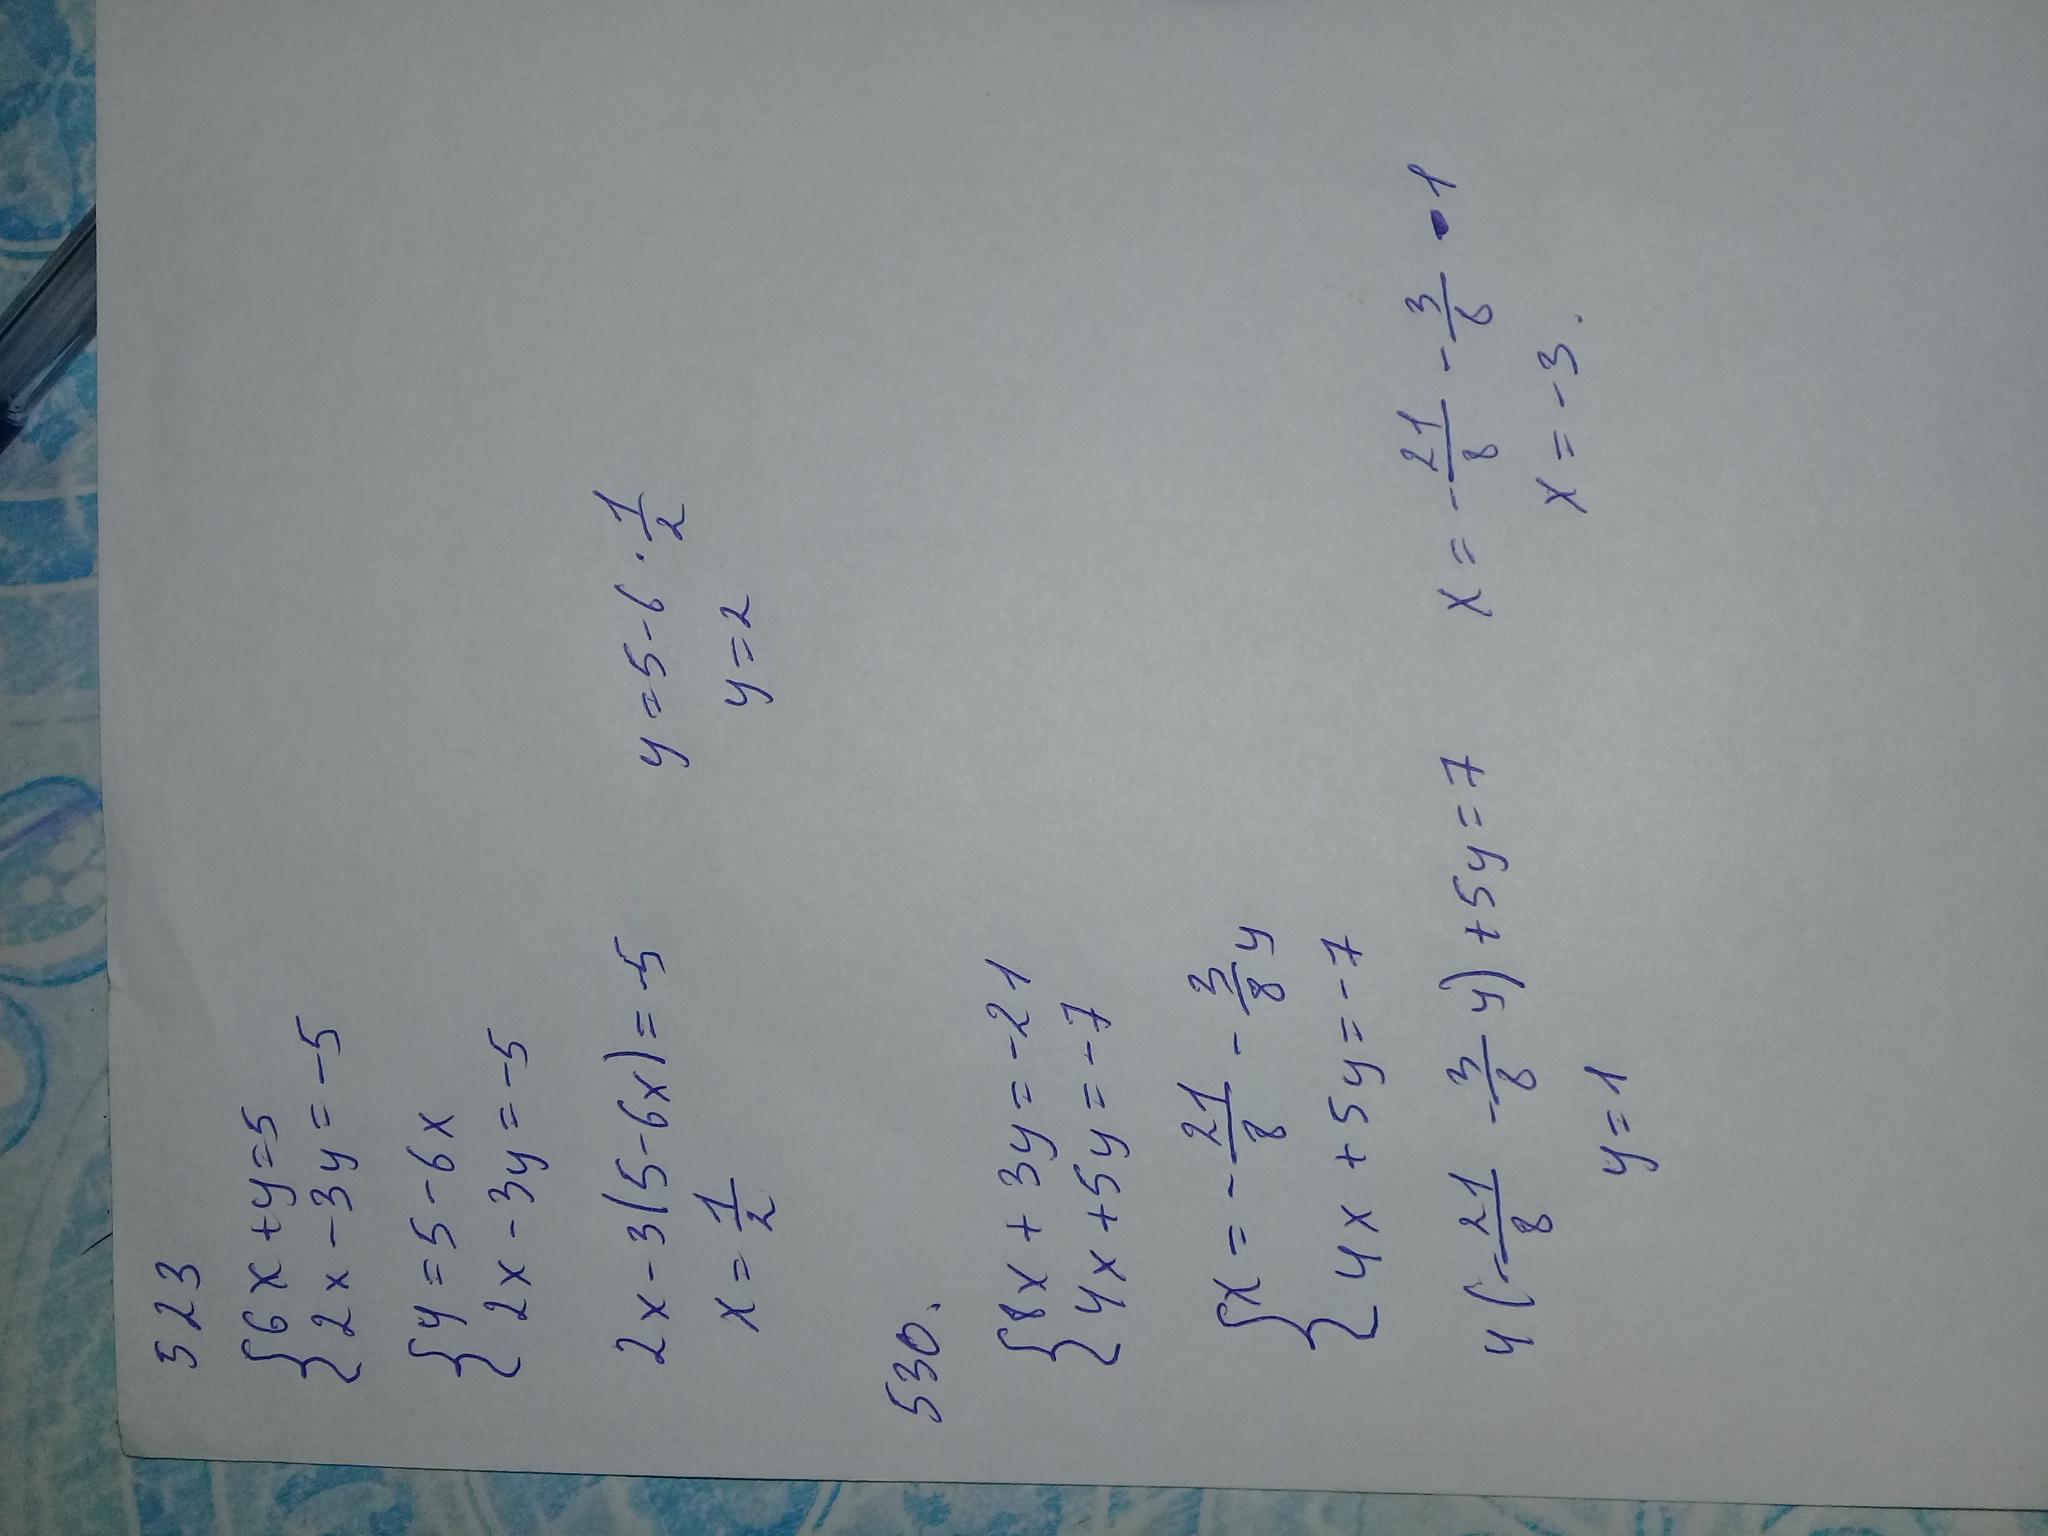 523
{6x+y=5
2x-3y=-5
{y=5-6x
2x-3y=-5
2x-3(5-6x)=-5 y=5-6·1/2
x=1/2 y=2
530.
{8x+3y=-21
4x+5y=-7
{x=-21/8-3/8y
4x+5y=-7
4(-21/8-3/8y)+5y=7 x=-21/8-3/8·1
y=1 x=-3.